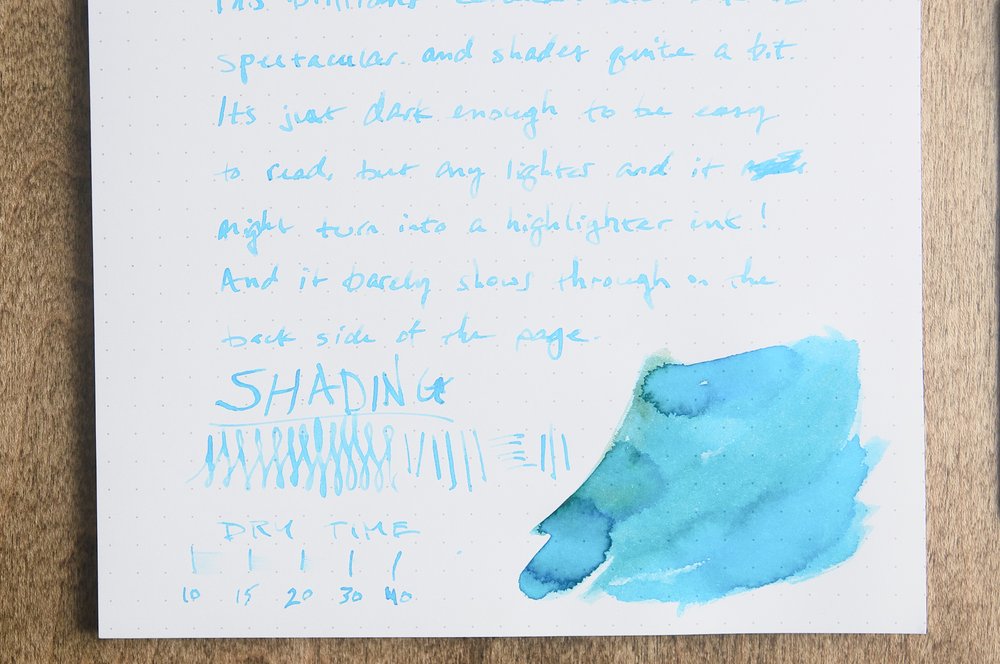 This brilliant
spectacular. and shades quite a bit.
It's just dark enough to be easy
to read, but any lighter and it
might turn into a highlighter ink!
And it barely shows through on the
back side of the page.
SHADING
DRY TIME
10 15 20 30 40